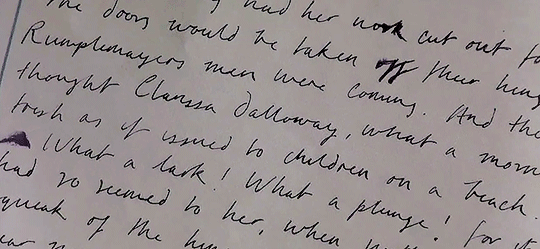 The doors would be taken off their hing
Rumplemayers men were coming. And the
thought Clarissa Dalloway, what a morn
fresh as if issued to children on a beach.
What a lark! What a plunge! For it
had so seemed to her, when
squeak of the hin
had her work cut out fo